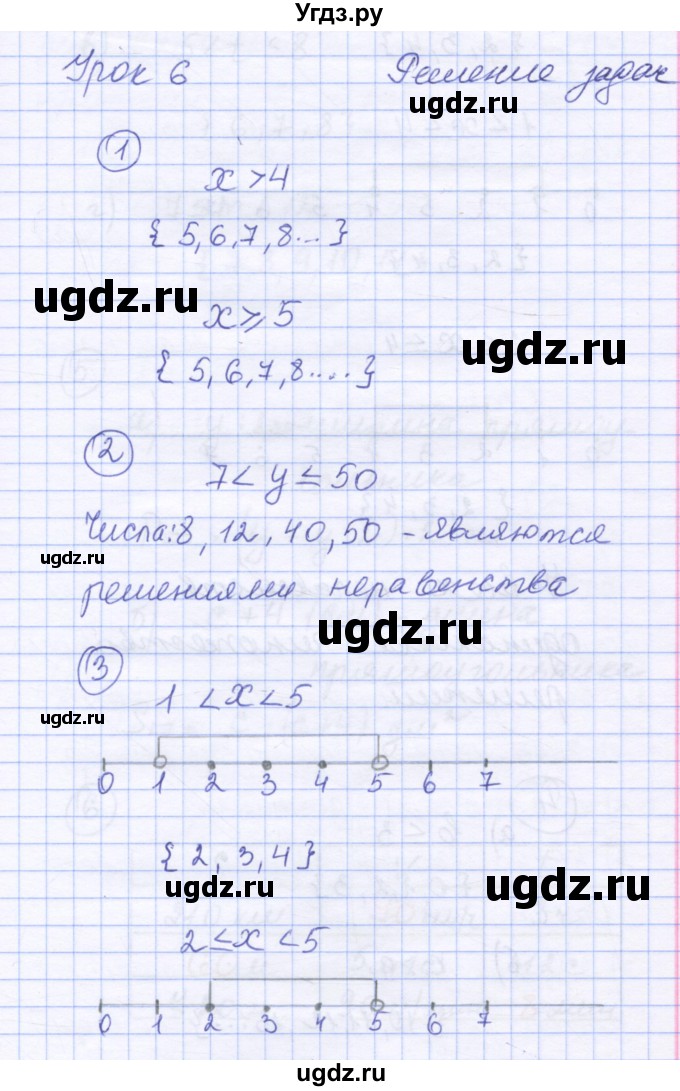 Угдз.ру
Урок 6 Решение задач
ugdz.ru
1
x > 4
{ 5, 6, 7, 8... }
ugdz.ru
x ⩾ 5
ugdz.ru
{ 5, 6, 7, 8.... }
2
7 < y ≤ 50
Числа: 8, 12, 40, 50 – являются
ugdz.ru
решениями неравенства
ugdz.ru
3
1 < x < 5
ugdz.ru
0 1 2 3 4 5 6 7
{ 2, 3, 4 }
ugdz.ru ugdz.ru
2 ≤ x < 5
0 1 2 3 4 5 6 7
ugdz.ru ugdz.ru